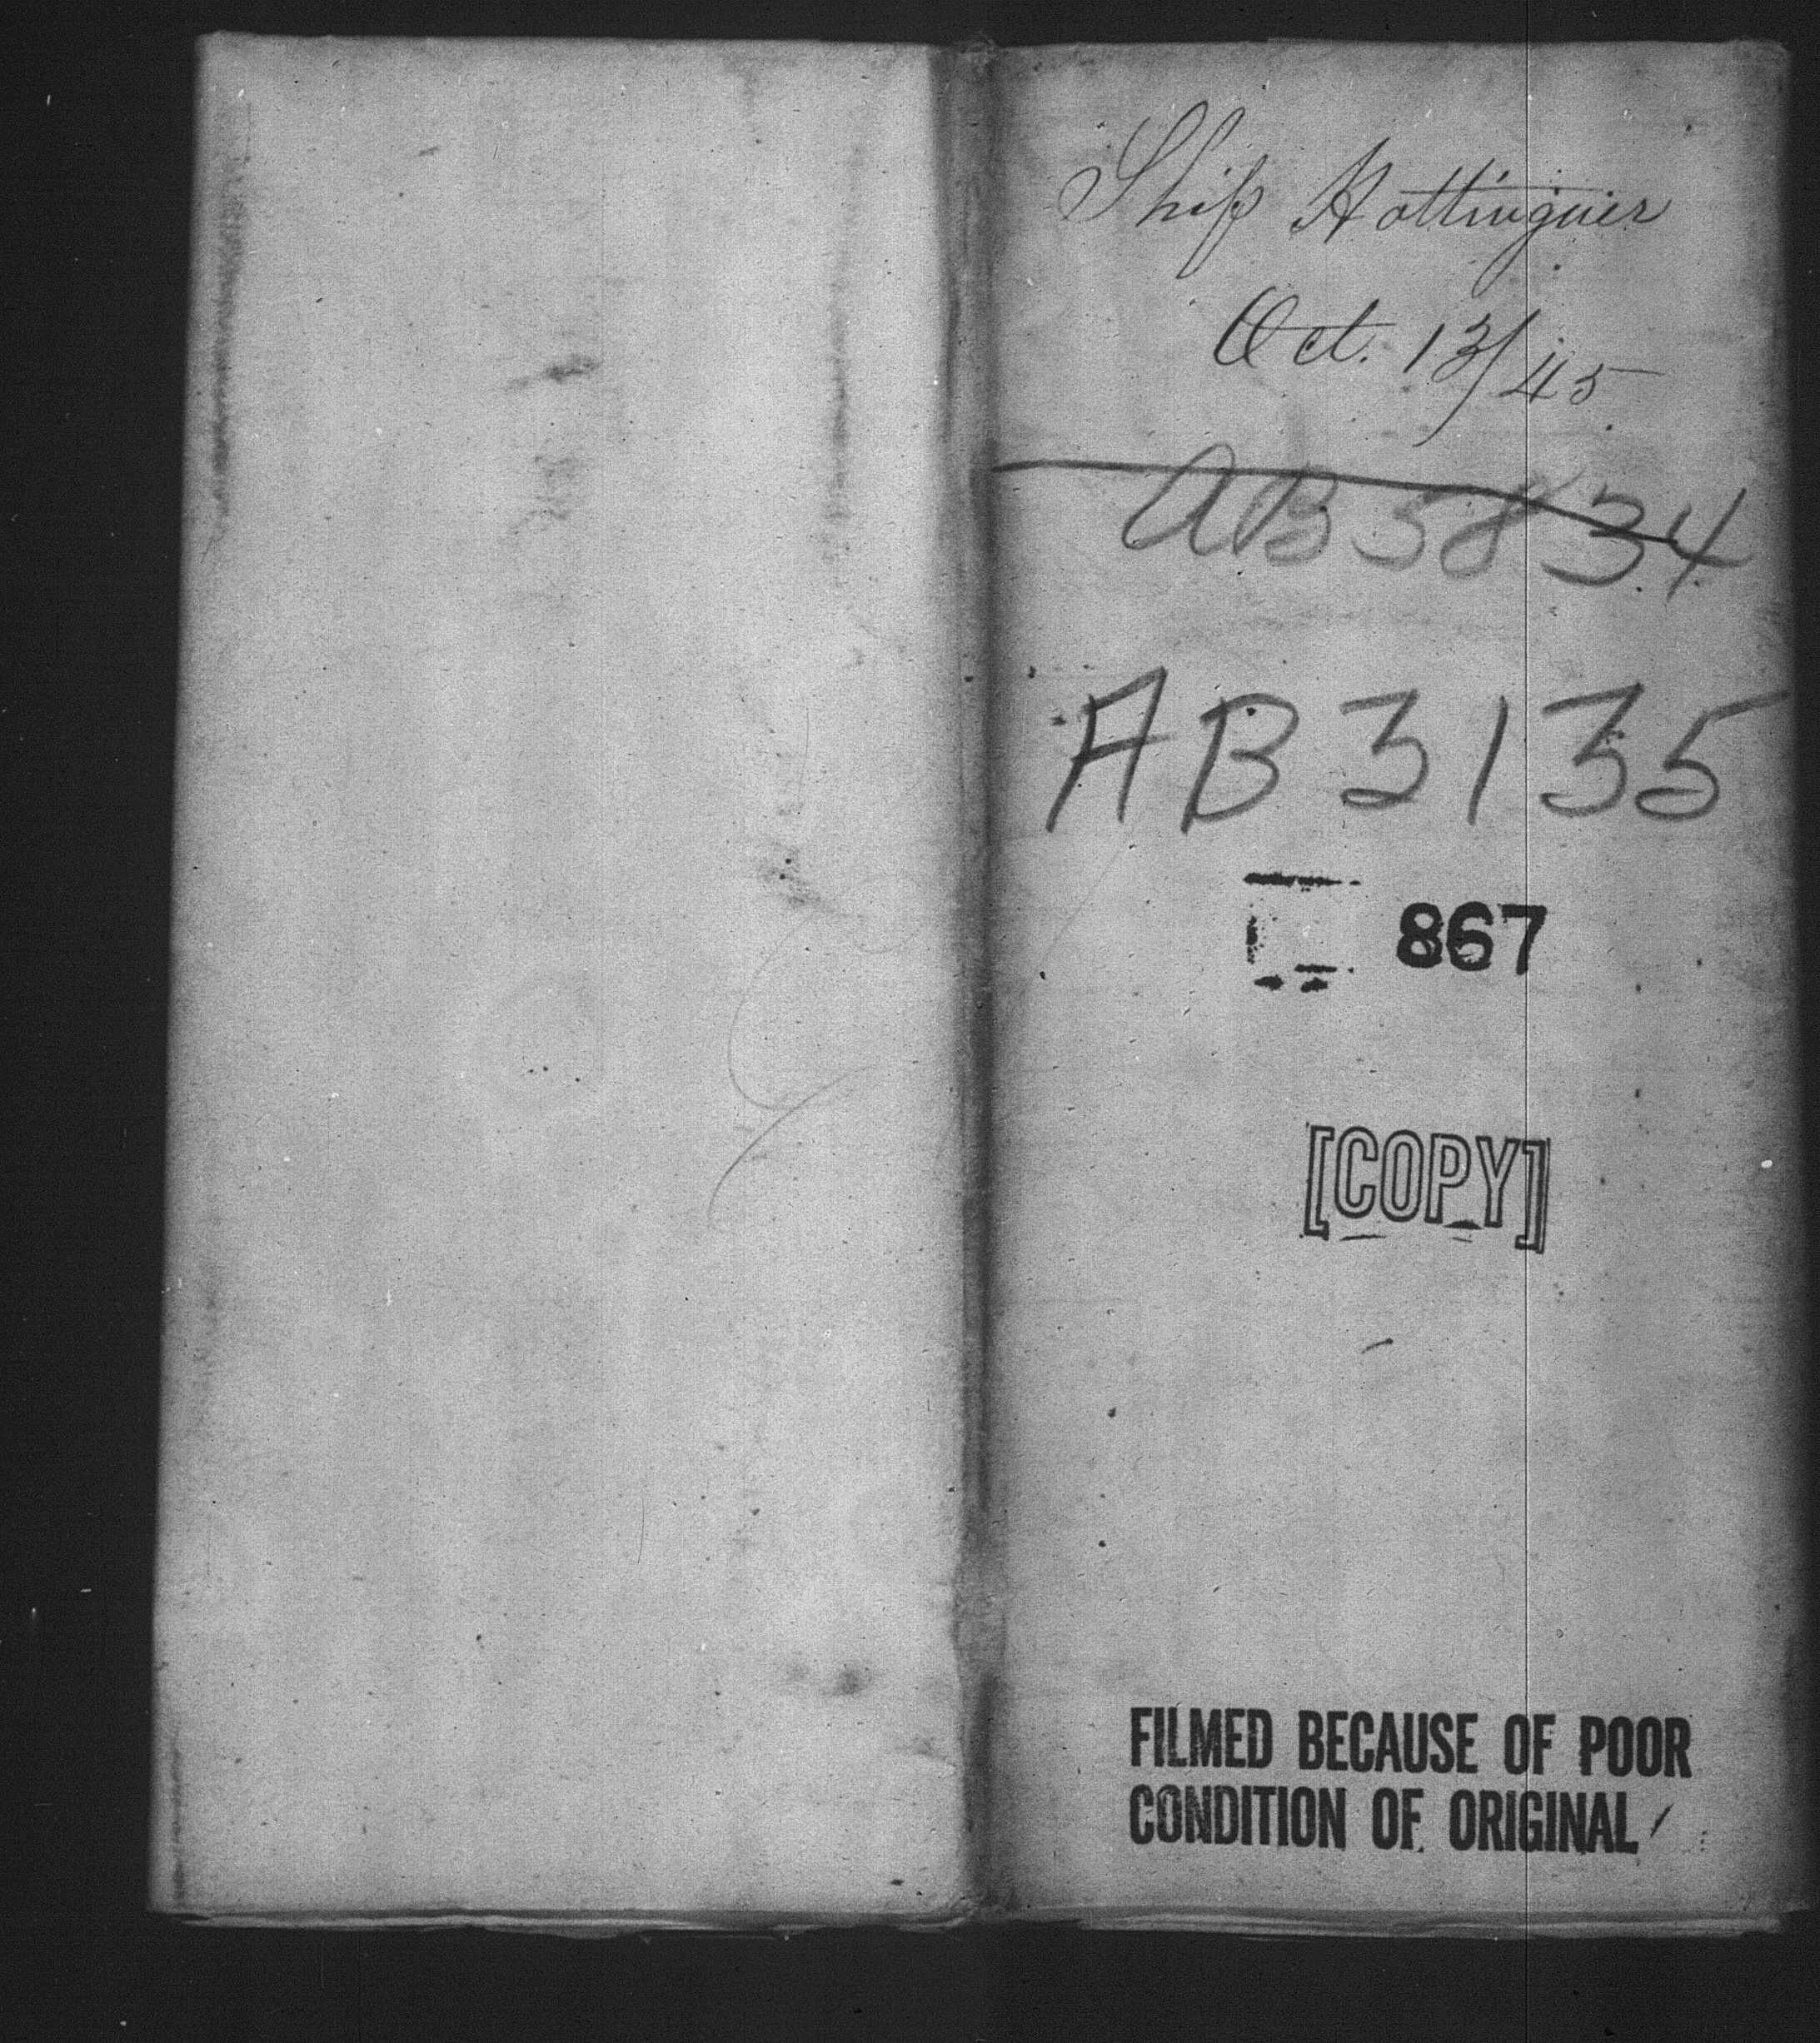 Ship Hottinguer
Oct. 13/45
AB 5834
AB 3135
867
[COPY]
FILMED BECAUSE OF POOR
CONDITION OF ORIGINAL